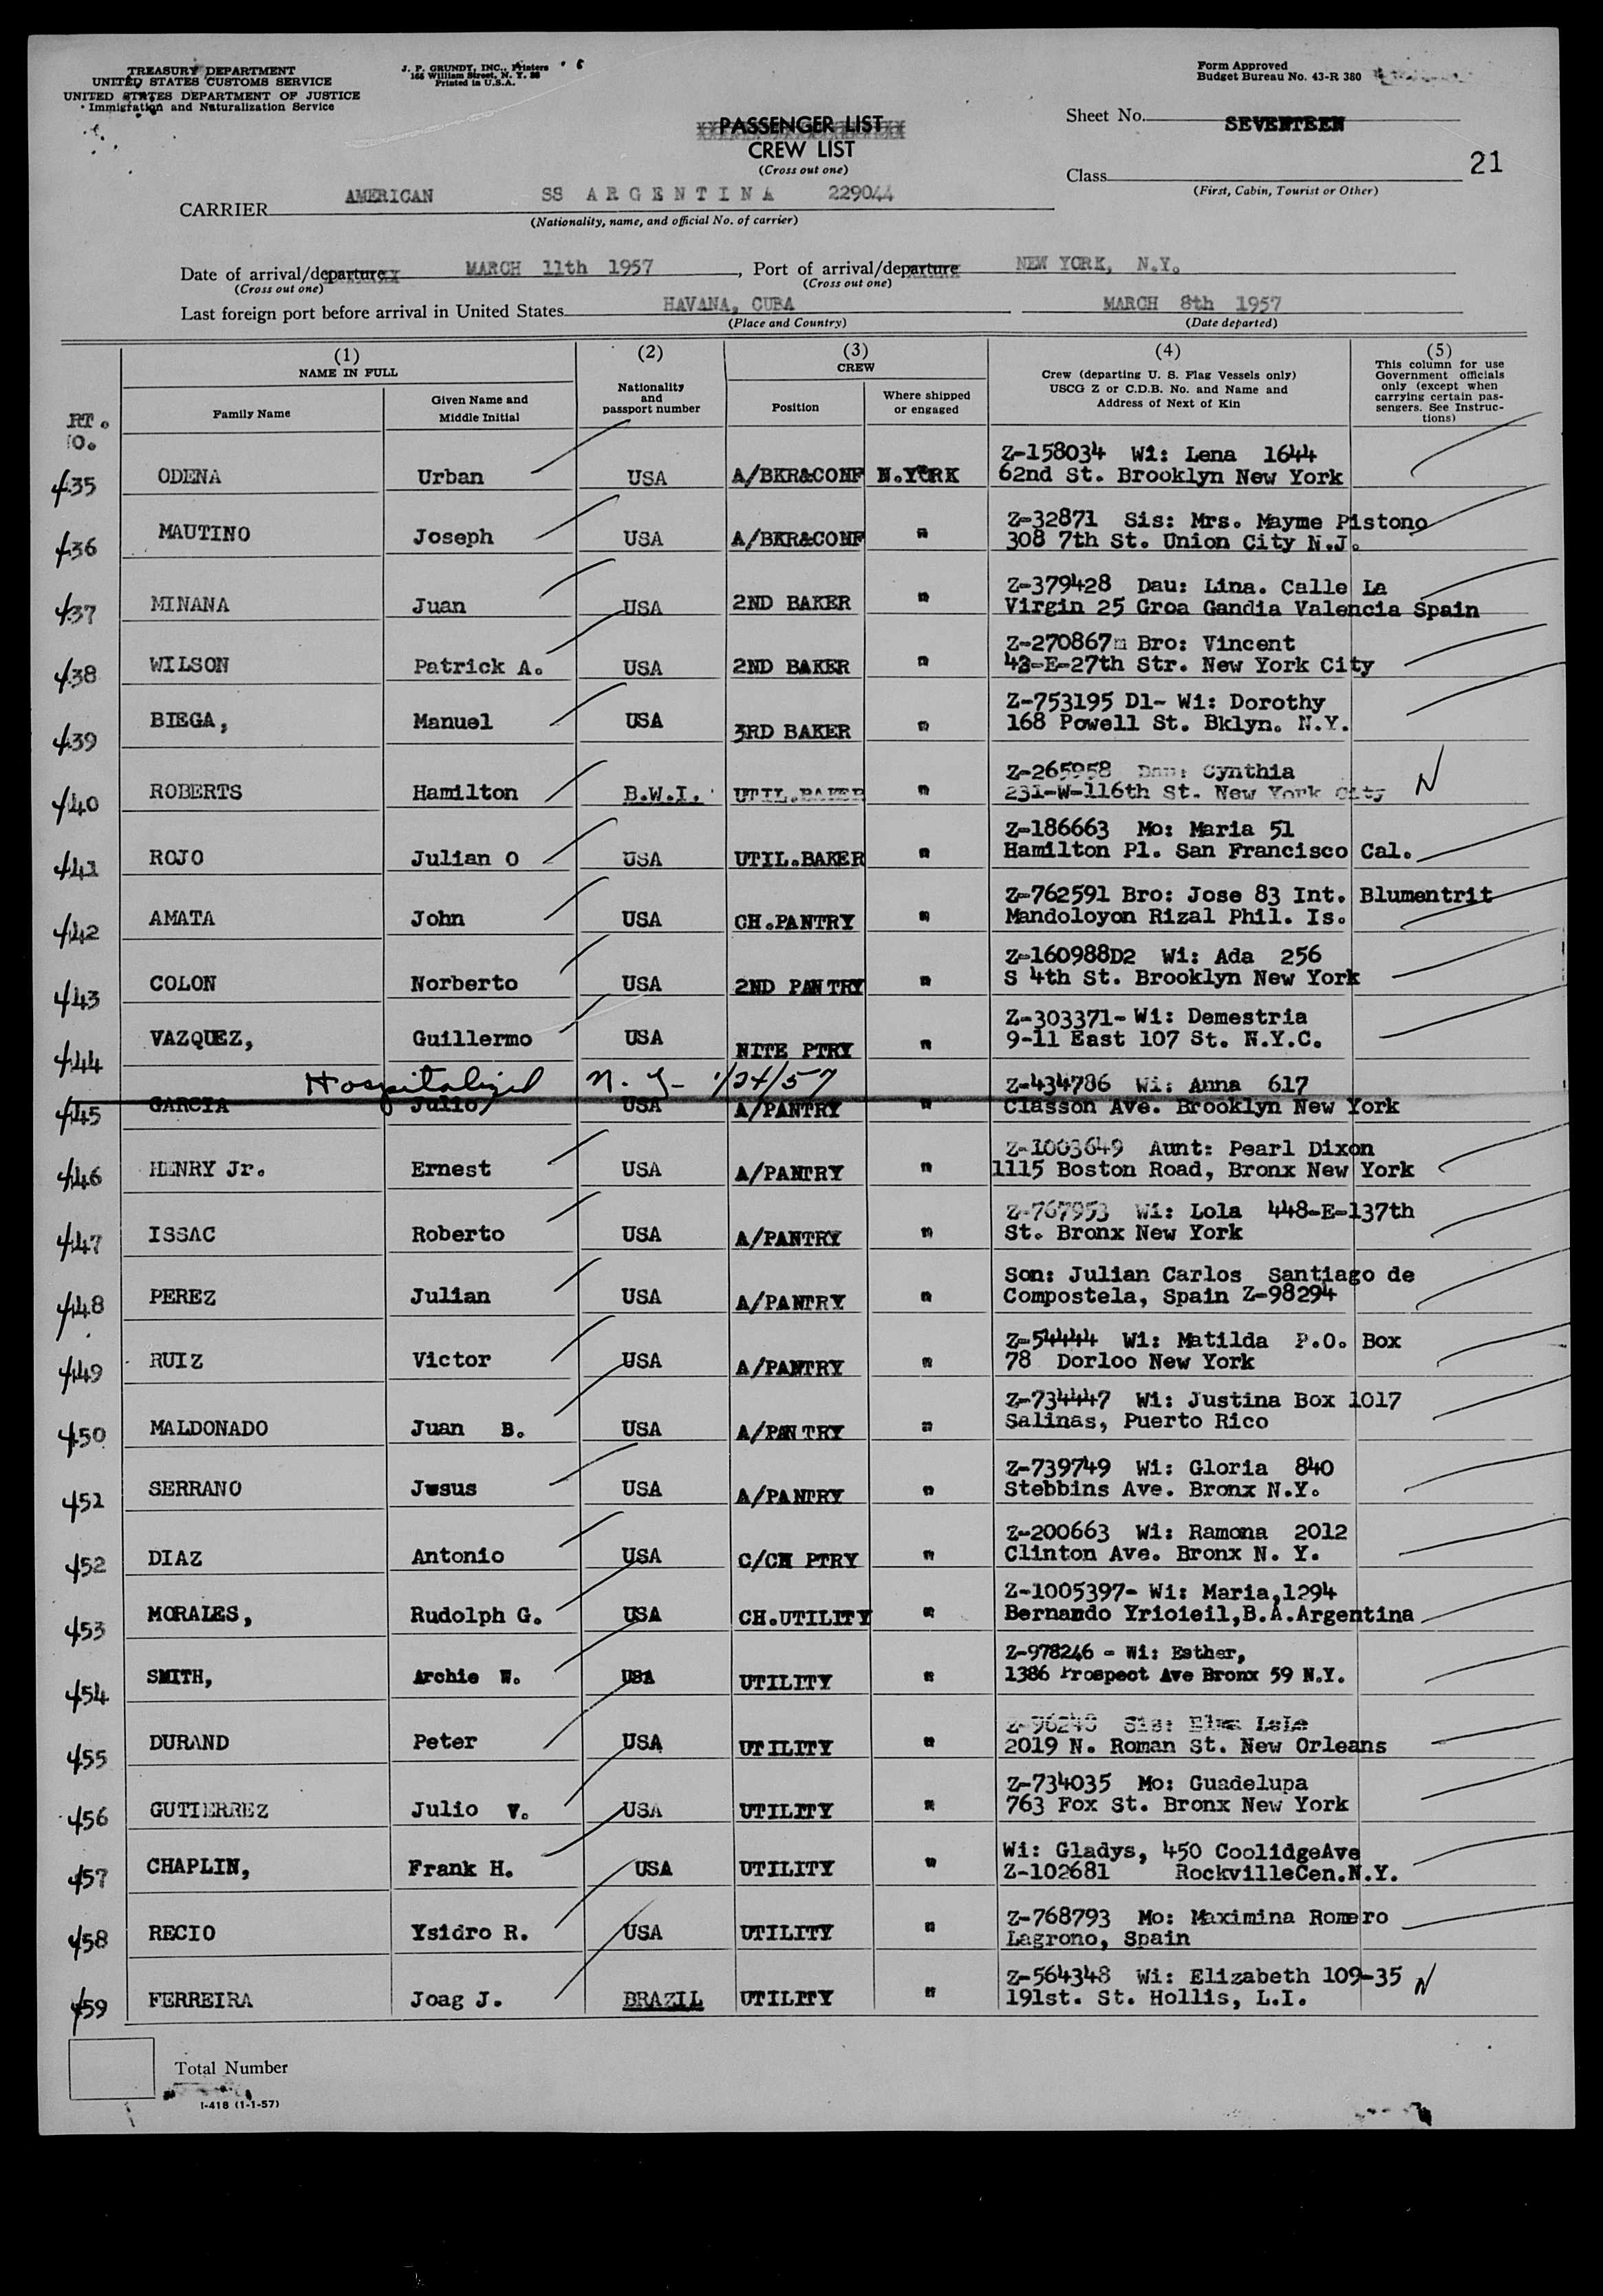 TREASURY DEPARTMENT
UNITED STATES CUSTOMS SERVICE
UNITED STATES DEPARTMENT OF JUSTICE
Immigration and Naturalization Service
J. P. GRUNDY, INC., Printers
165 William Street, N. Y. 38
Printed in U.S.A.
Form Approved
Budget Bureau No. 43-R 380
PASSENGER LIST
CREW LIST
(Cross out one)
Sheet No. SEVENTEEN
Class
(First, Cabin, Tourist or Other)
21
CARRIER AMERICAN SS ARGENTINA 229044
(Nationality, name, and official No. of carrier)
Date of arrival/departure MARCH 11th 1957, Port of arrival/departure NEW YORK, N.Y.
(Cross out one) (Cross out one)
Last foreign port before arrival in United States HAVANA, CUBA MARCH 8th 1957
(Place and Country) (Date departed)
(1) NAME IN FULL
Family Name
Given Name and Middle Initial
(2) Nationality and passport number
(3) CREW
Position
Where shipped or engaged
(4) Crew (departing U. S. Flag Vessels only) USCG Z or C.D.B. No. and Name and Address of Next of Kin
(5) This column for use Government officials only (except when carrying certain passengers. See Instructions)
RT.
O.
435 ODENA Urban USA A/BKR&CONF N.YORK Z-158034 Wi: Lena 1644
62nd St. Brooklyn New York
436 MAUTINO Joseph USA A/BKR&CONF " Z-32871 Sis: Mrs. Mayme Pistono
308 7th St. Union City N.J.
437 MINANA Juan USA 2ND BAKER " Z-379428 Dau: Lina. Calle La
Virgin 25 Groa Gandia Valencia Spain
438 WILSON Patrick A. USA 2ND BAKER " Z-270867 Bro: Vincent
43-E-27th Str. New York City
439 BIEGA, Manuel USA 3RD BAKER " Z-753195 D1- Wi: Dorothy
168 Powell St. Bklyn. N.Y.
440 ROBERTS Hamilton B.W.I. UTIL.BAKER " Z-265958 Dau: Cynthia
231-W-116th St. New York City N
441 ROJO Julian O USA UTIL.BAKER " Z-186663 Mo: Maria 51
Hamilton Pl. San Francisco Cal.
442 AMATA John USA CH.PANTRY " Z-762591 Bro: Jose 83 Int. Blumentrit
Mandoloyon Rizal Phil. Is.
443 COLON Norberto USA 2ND PANTRY " Z-160988D2 Wi: Ada 256
S 4th St. Brooklyn New York
444 VAZQUEZ, Guillermo USA NITE PTRY " Z-303371- Wi: Demestria
9-11 East 107 St. N.Y.C.
Hospitalized N.Y- 1/24/57
445 GARCIA Julio USA A/PANTRY " Z-434786 Wi: Anna 617
Classon Ave. Brooklyn New York
446 HENRY Jr. Ernest USA A/PANTRY " Z-1003649 Aunt: Pearl Dixon
1115 Boston Road, Bronx New York
447 ISSAC Roberto USA A/PANTRY " Z-767953 Wi: Lola 448-E-137th
St. Bronx New York
448 PEREZ Julian USA A/PANTRY " Son: Julian Carlos Santiago de
Compostela, Spain Z-98294
449 RUIZ Victor USA A/PANTRY " Z-54444 Wi: Matilda P.O. Box
78 Dorloo New York
450 MALDONADO Juan B. USA A/PANTRY " Z-734447 Wi: Justina Box 1017
Salinas, Puerto Rico
451 SERRANO Jesus USA A/PANTRY " Z-739749 Wi: Gloria 840
Stebbins Ave. Bronx N.Y.
452 DIAZ Antonio USA C/CH PTRY " Z-200663 Wi: Ramona 2012
Clinton Ave. Bronx N. Y.
453 MORALES, Rudolph G. USA CH.UTILITY " Z-1005397- Wi: Maria,1294
Bernando Yrioieil,B.A.Argentina
454 SMITH, Archie W. USA UTILITY " Z-978246 - Wi: Esther,
1386 Prospect Ave Bronx 59 N.Y.
455 DURAND Peter USA UTILITY " Sis:
2019 N. Roman St. New Orleans
456 GUTIERREZ Julio V. USA UTILITY " Z-734035 Mo: Guadelupa
763 Fox St. Bronx New York
457 CHAPLIN, Frank H. USA UTILITY " Wi: Gladys, 450 CoolidgeAve
Z-102681 RockvilleCen.N.Y.
458 RECIO Ysidro R. USA UTILITY " Z-768793 Mo: Maximina Romero
Lagrono, Spain
459 FERREIRA Joag J. BRAZIL UTILITY " Z-564348 Wi: Elizabeth 109-35 N
191st. St. Hollis, L.I.
Total Number
I-418 (1-1-57)